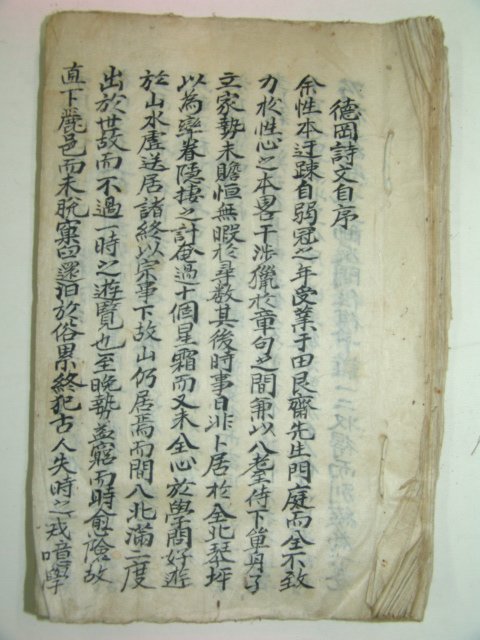 德岡詩文自序
余性本迂踈自弱冠之年受業于田艮齋先生門庭而全不致
力於性心之本畧干涉獵於章句之間兼以八耋侍下簞瓢了
立家勢未贍恒無暇於尋數其後時事日非卜居於全北琴坪
以為率眷隱捿之計奄過十個星霜而又未全心於學問好遊
於山水虛送居諸終以宗事下故山仍居焉而間入北滿二度
出於世故而不過一時之遊覽也至晚勢益窮而時愈險故
直下麗邑而未脫窠臼還汩於俗累終犯古人失時之戒噫學